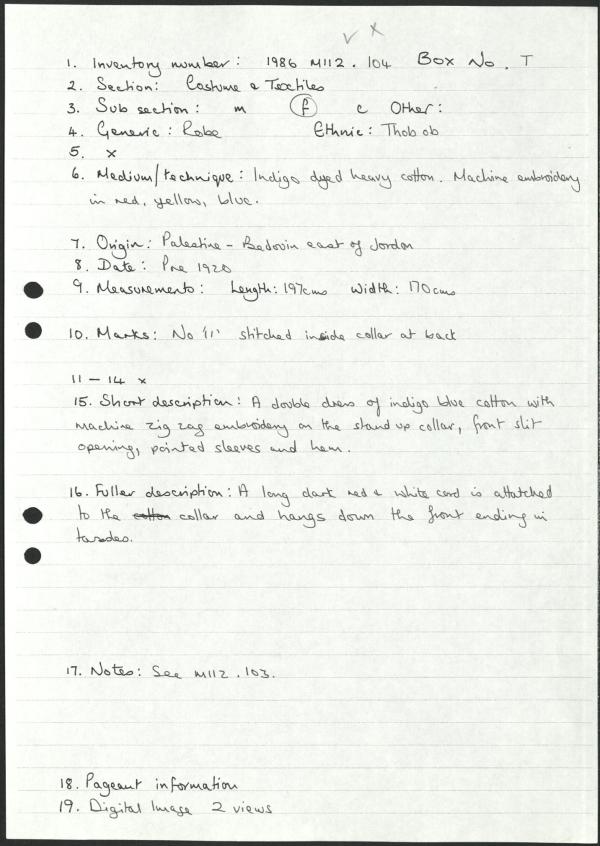 ✓ x
1. Inventory number: 1986 M112.104 Box No. T
2. Section: Costume & Textiles
3. Sub section: m (f) c Other:
4. Generic: Robe Ethnic: Thob ob
5. x
6. Medium/technique: Indigo dyed heavy cotton. Machine embroidery
in red, yellow, blue.
7. Origin: Palestine - Bedouin east of Jordan
8. Date: Pre 1920
9. Measurements: Length: 197cms Width: 170cms
10. Marks: No '11' stitched inside collar at back
11 - 14 x
15. Short description: A double dress of indigo blue cotton with
machine zig zag embroidery on the stand up collar, front slit
opening, pointed sleeves and hem.
16. Fuller description: A long dark red & white cord is attatched
to the cotton collar and hangs down the front ending in
tassles.
17. Notes: See M112.103.
18. Pageant information
19. Digital Image 2 views